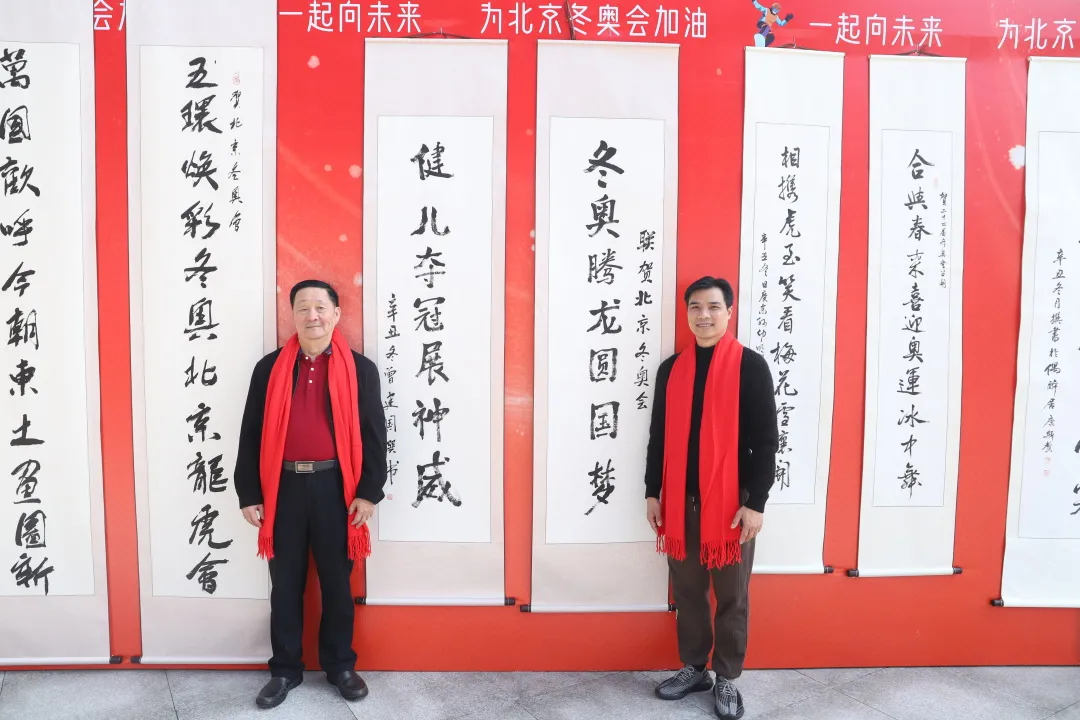 会加
一起向未来
为北京冬奥会加油
一起向未来
为北京
萬國歡呼今朝東土畫圖新
賀北京冬奥會
五環焕彩冬奥北京龍虎會
健儿夺冠展神威
辛丑冬曾建国撰书
联贺北京冬奥会
冬奥腾龙圆国梦
相携虎至笑看梅花雪里開
合典春来喜迎奥運冰中舞
辛丑冬月撰書於